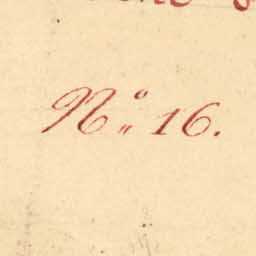 No. 16.